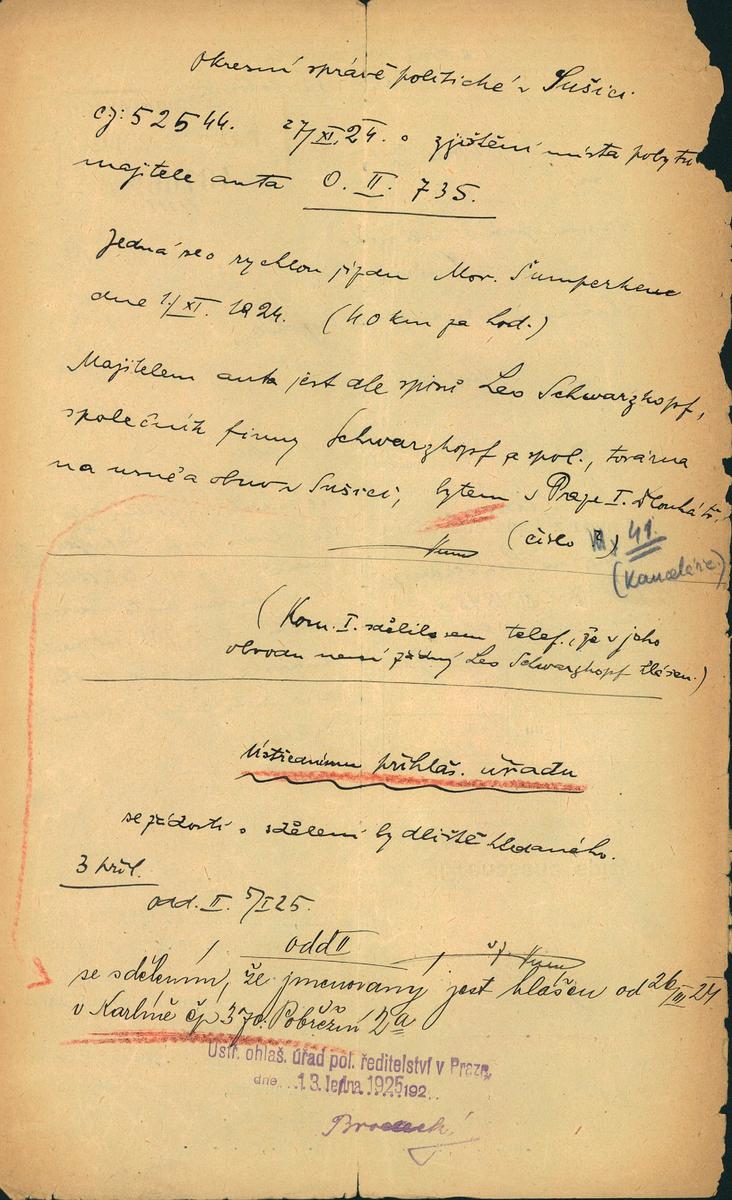 Okresní správě politické v Sušici.
čj: 52544. 27/XI.24. o zjištění místa pobytu
majitele auta O. II. 735.
Jedná se o rychlou jízdu Mor. Šumperkem
dne 1./XI. 1924. (40 km za hod.)
Majitelem auta jest dle spisů Leo Schwarzkopf,
společník firmy Schwarzkopf a spol., továrna
na usně a obuv v Sušici, bytem v Praze I. Dlouhá tř.
(číslo 41.
(Kanceláře.)
(Kom. I. sdělilo sem telef., že v jeho
obvodu není žádný Leo Schwarzkopf hlášen.)
Ústřednímu přihlaš. úřadu
se žádostí o sdělení bydliště hledaného.
3 příl.
odd. II. 5/I 25.
odd II
se sdělením, že jmenovaný jest hlášen od 26/III 24
v Karlíně čp 370. Pobřežní 2a
Ústř. ohlaš. úřad pol. ředitelství v Praze,
dne 13. ledna 1925 192